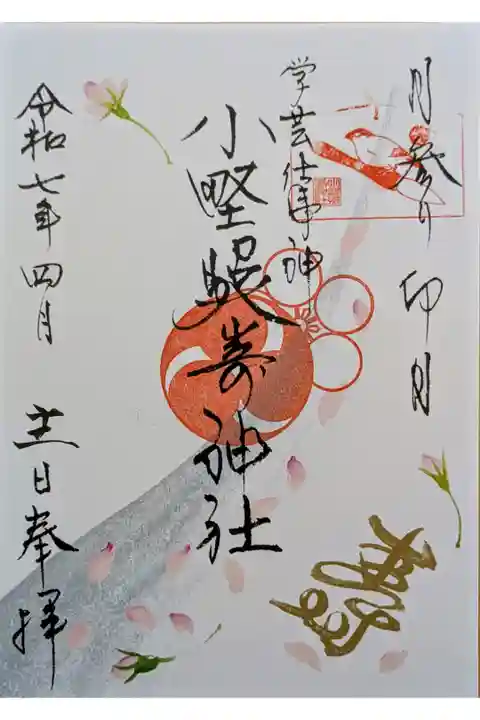 月参り 卯月
学芸仕事神
小野照嵜神社
令和七年四月 日奉拝